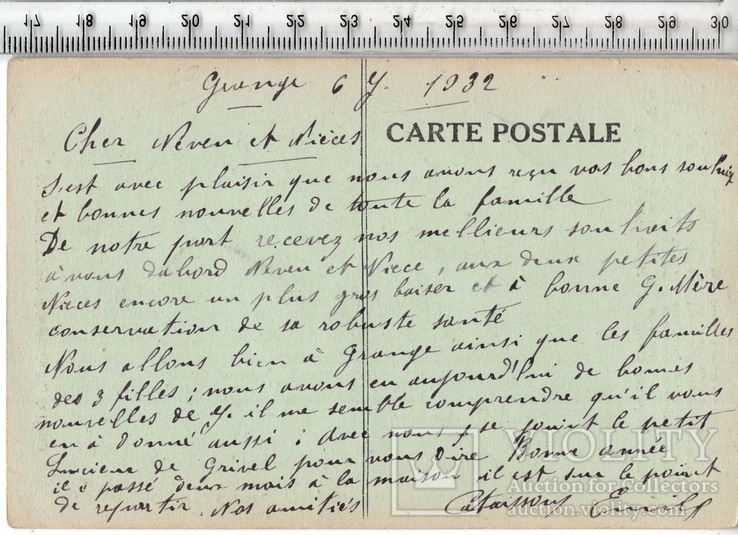 17 18 19 20 21 22 23 24 25 26 27 28 29 30
Grange 6 J. 1932
Cher Neveu et Nièces
CARTE POSTALE
S'est avec plaisir que nous avons reçu vos bons souhaits
et bonnes nouvelles de toute la famille
De notre part recevez nos meillieurs souhaits
à vous dabord Neveu et Niece, aux deux petites
Nieces encore un plus gros baiser et à bonne G. Mère
conservation de sa robuste santé
Nous allons bien à Grange ainsi que les familles
des 3 filles ; nous avons eu aujourd'hui de bonnes
nouvelles de J. il me semble comprendre qu'il vous
en à donné aussi : avec nous, se joint le petit
Lucien de Grivel pour vous dire Bonne année
il à passé deux mois à la maison il est sur le point
de repartir. Nos amitiés
VIOLITY
Auction for Collectors
auction.violity.com